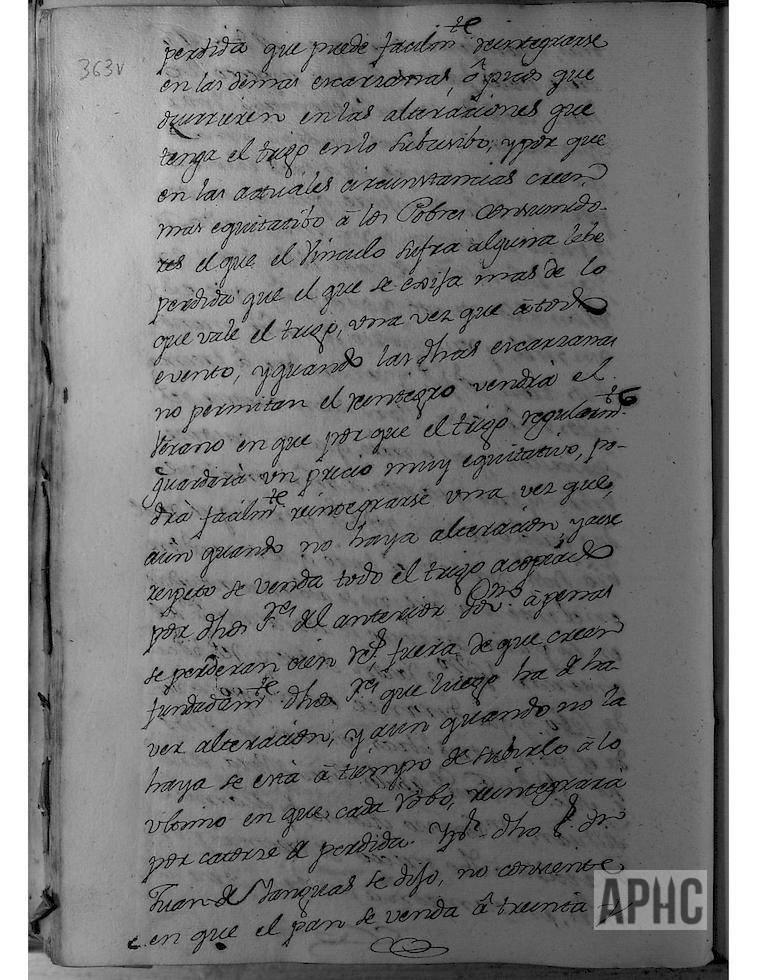 363v
perdida que puede facilmte reintegrarse
en las demas escarzanas, ó pzas que
ocurrieren en las alteraciones que
tenga el trigo en lo subcesibo, y por que
en las actuales circunstancias creen
mas equitatibo á los Pobres Consumido-
res el que el Vinculo sufra alguna lebe
perdida que el que se exija mas de lo
que vale el trigo, una vez que á todo
evento, y quando las dhas escarzanas
no permitan el reintegro vendrá el
Verano en que por que el trigo regularmte
guardará un precio muy equitativo, po-
drá facilmte reintegrarse una vez que,
aun quando no haya alteracion y a ese
respeto se venda todo el trigo acopiado
por dhos Ses del anterior Govno. apenas
se perderan cien Rs, fuera de que creen
fundadamte dhos Ses que luego ha de ha-
ver alteracion, y aun quando no la
haya se está á tiempo de subirlo á lo
ultimo en que cada Robo, reintegrará
por catorse de perdida. Y pr dho Sr dn
Juan de Sanguas se dijo, no consiente
en que el pan se venda á treinta y
APHC